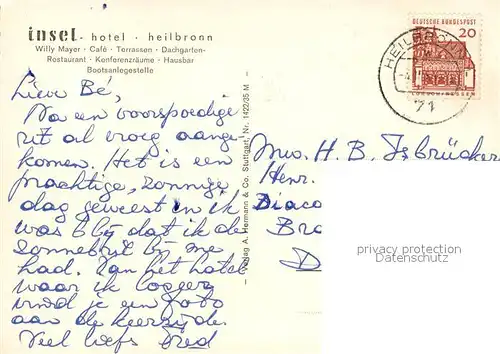 insel - hotel · heilbronn
Willy Mayer · Café · Terrassen · Dachgarten-
Restaurant · Konferenzräume · Hausbar
Bootsanlegestelle
DEUTSCHE BUNDESPOST
20
HEILBRONN
71
Lieve Bé,
Na een voorspoedige
rit al vroeg aange-
komen. Het is een
prachtige, zonnige
dag geweest en ik
was blij dat ik de
zonnebril bij me
had. Van het hotel
waar ik logeer
vind je een foto
aan de keerzijde.
Veel liefs Fred
Verlag A. Hermann & Co. Stuttgart, Nr. 1422/35 M
Mw. H. B. IJsbrücker
Henr.
Diaco
Bro
D
privacy protection
Datenschutz